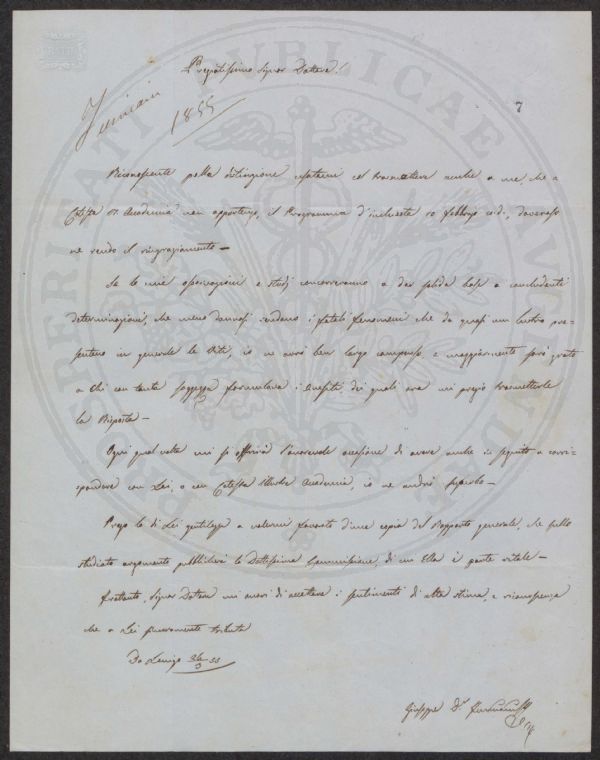 Pregiatissimo Signor Dottore!
1855
7
Riconoscente pella distinzione usatami col trasmettere anche a me, che a
Codesta Accademia non appartengo, il Programma d'inchiesta 10 febbrajo c. d., doveroso
ne rendo il ringraziamento —
Se le mie osservazioni e studj concorreranno a dar solida base a concludenti
determinazioni, che meno dannosi rendano i fatali fenomeni che da quasi un lustro pre=
sentano in generale le Viti, io ne avrò ben largo compenso, e maggiormente sarò grato
a Chi con tanta saggezza formulava i Quesiti, dei quali ora mi pregio trasmetterle
la Risposta —
Ogni qual volta mi si offrirà l'onorevole occasione di avere anche in seguito a corri=
spondere con Lei, o con Codesta Illustre Accademia, io ne andrò superbo —
Prego la di Lei gentilezza a volermi favorito d'una copia del Rapporto generale, che sullo
studiato argomento pubblicherà la Dottissima Commissione, di cui Ella è parte vitale —
Frattanto, Signor Dottore mi onori di accettare i sentimenti di alta stima, e riconoscenza
che a Lei puramente tributa
Da Lonigo 55
Giuseppe Dr.
PROSPERITATI PUBLICAE AUGENDAE